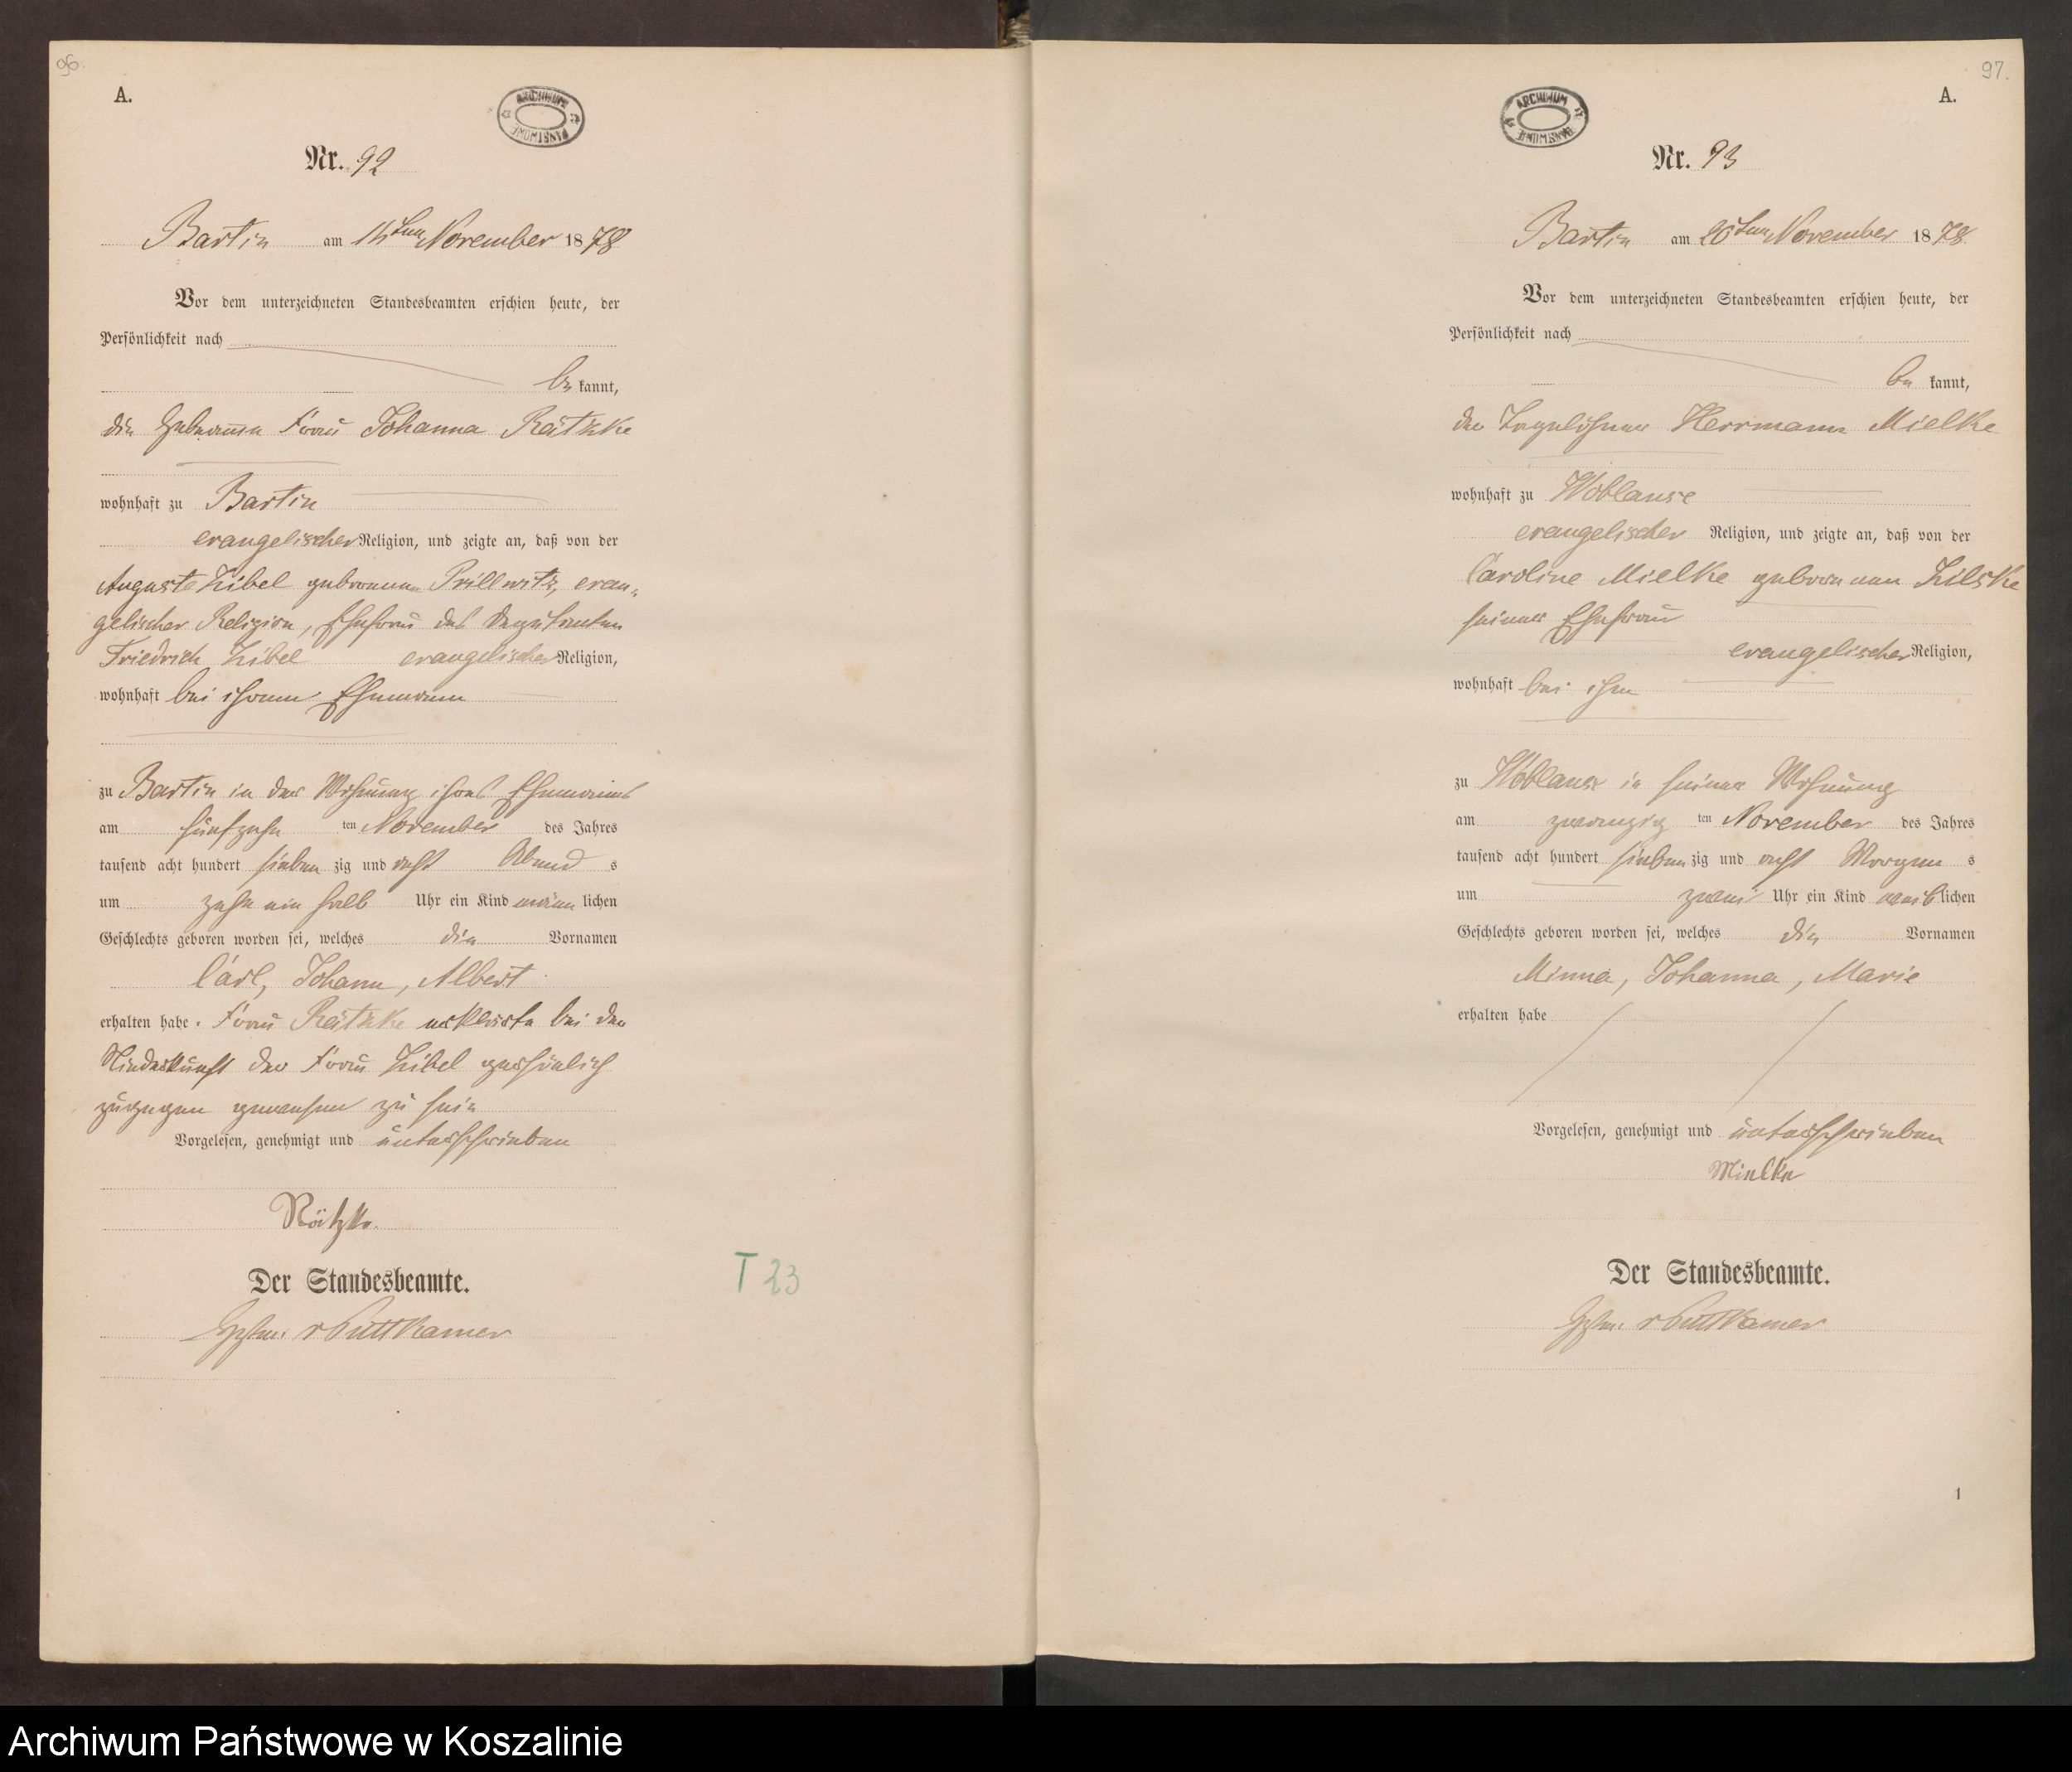 96.
A.
ARCHIWUM PAŃSTWOWE
Nr. 92
Bartin am ten November 1878
Vor dem unterzeichneten Standesbeamten erschien heute, der
Persönlichkeit nach
be kannt,
die Hebamme Frau Johanna Rätzke
wohnhaft zu Bartin
evangelischer Religion, und zeigte an, daß von der
Auguste Zibel geborenen Prillwitz, evan-
gelischer Religion, Ehefrau des Deputanten
Friedrich Zibel evangelischer Religion,
wohnhaft bei ihrem Ehemann
zu Bartin in der Wohnung ihres Ehemanns
am fünfzehn ten November des Jahres
tausend acht hundert sieben zig und acht Abend s
um zehn ein halb Uhr ein Kind männ lichen
Geschlechts geboren worden sei, welches die Vornamen
Carl, Johann, Albert
erhalten habe. Frau Rätzke erklärte bei der
Niederkunft der Frau Zibel persönlich
zugegen gewesen zu sein
Vorgelesen, genehmigt und unterschrieben
Rätzke.
Der Standesbeamte.
v Puttkamer
T 23
97.
A.
ARCHIWUM PAŃSTWOWE
Nr. 93
Bartin am 20ten November 1878
Vor dem unterzeichneten Standesbeamten erschien heute, der
Persönlichkeit nach
be kannt,
der Tagelöhner Herrmann Mielke
wohnhaft zu Woblanse
evangelischer Religion, und zeigte an, daß von der
Caroline Mielke geborenen Zilske
seiner Ehefrau
evangelischer Religion,
wohnhaft bei ihm
zu Woblanse in seiner Wohnung
am zwanzig ten November des Jahres
tausend acht hundert sieben zig und acht Morgen s
um zwei Uhr ein Kind weib lichen
Geschlechts geboren worden sei, welches die Vornamen
Minna, Johanna, Marie
erhalten habe
Vorgelesen, genehmigt und unterschrieben
Mielke
Der Standesbeamte.
v Puttkamer
1
Archiwum Państwowe w Koszalinie